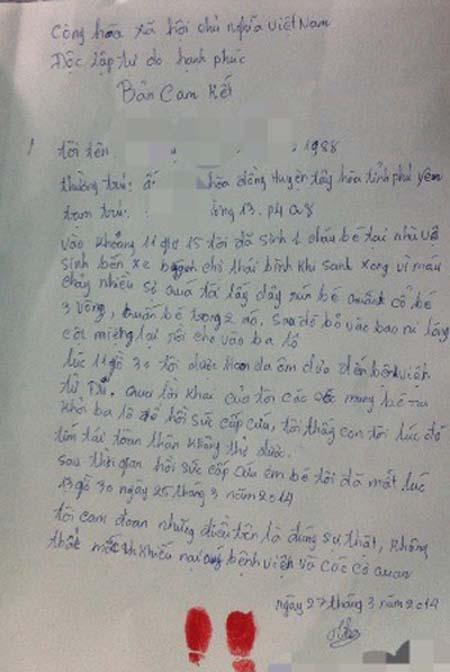 Cộng hòa xã hội chủ nghĩa Việt Nam
Độc lập tự do hạnh phúc
Bản Cam Kết
tôi tên 1988
thường trú: ấ hòa đồng Huyện tây hòa tỉnh phú yên
tạm trú: ông 13. p4 Q8
vào khoảng 11 giờ 15 tôi đã sinh 1 cháu bé tại nhà vệ
sinh bến xe chợ thái bình khi sanh xong vì máu
chảy nhiều sợ quá tôi lấy dây rún bé quấn cổ bé
3 vòng, quấn bé trong 2 áo. sau đó bỏ vào bao ni lông
cột miệng lại rồi cho vào ba lô
lúc 11 giờ 30 tôi được đưa đến bệnh viện
từ Dũ. Qua lời khai của tôi các mang bé ra
khỏi ba lô để hồi sức cấp cứu, tôi thấy con tôi lúc đó
tím tái toàn thân không thở được.
sau thời gian hồi sức cấp cứu em bé tôi đã mất lúc
13 giờ 30 ngày 25 tháng 3 năm 2014
tôi cam đoan những điều trên là đúng sự thật, không
thắc mắc khiếu nại bệnh viện và các cơ quan
ngày 27 tháng 3 năm 2014